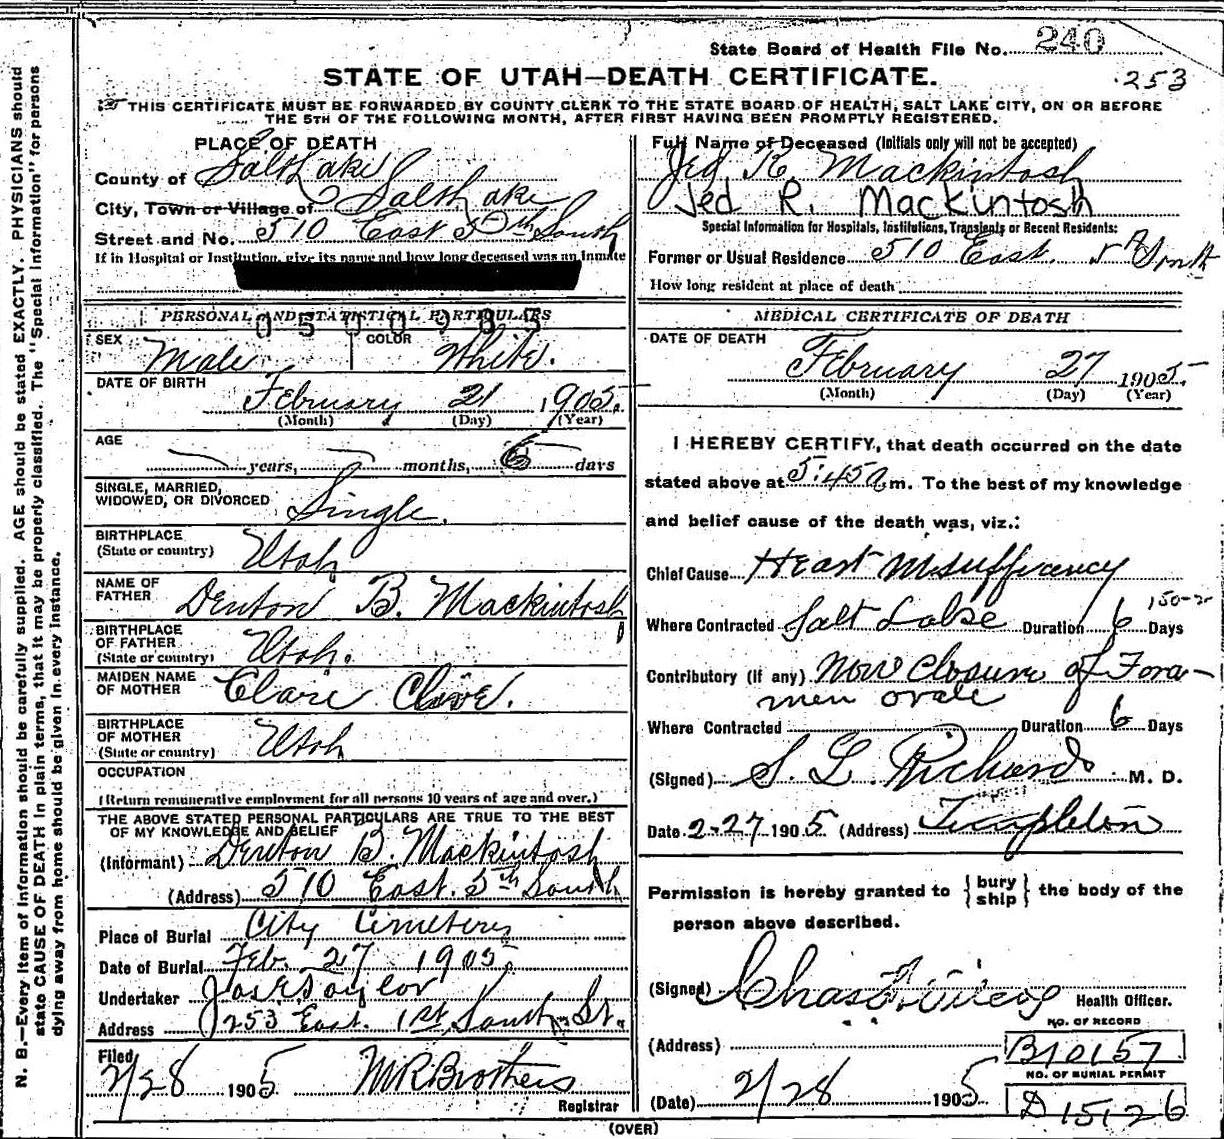 State Board of Health File No. 240
253
STATE OF UTAH—DEATH CERTIFICATE.
THIS CERTIFICATE MUST BE FORWARDED BY COUNTY CLERK TO THE STATE BOARD OF HEALTH, SALT LAKE CITY, ON OR BEFORE
THE 5TH OF THE FOLLOWING MONTH, AFTER FIRST HAVING BEEN PROMPTLY REGISTERED.
N. B.—Every item of information should be carefully supplied. AGE should be stated EXACTLY. PHYSICIANS should
state CAUSE OF DEATH in plain terms, that it may be properly classified. The "Special Information" for persons
dying away from home should be given in every instance.
PLACE OF DEATH
County of Salt Lake
City, Town or Village of Salt Lake
Street and No. 510 East 5th South
If in Hospital or Institution, give its name and how long deceased was an inmate
PERSONAL AND STATISTICAL PARTICULARS
0500985
SEX Male COLOR White.
DATE OF BIRTH
February 21 1905.
(Month) (Day) (Year)
AGE
years, months, 6 days
SINGLE, MARRIED,
WIDOWED, OR DIVORCED Single.
BIRTHPLACE
(State or country) Utah
NAME OF
FATHER Denton B. Mackintosh
BIRTHPLACE
OF FATHER
(State or country) Utah.
MAIDEN NAME
OF MOTHER Clare Clive.
BIRTHPLACE
OF MOTHER
(State or country) Utah
OCCUPATION
(Return remunerative employment for all persons 10 years of age and over.)
THE ABOVE STATED PERSONAL PARTICULARS ARE TRUE TO THE BEST
OF MY KNOWLEDGE AND BELIEF
(Informant) Denton B. Mackintosh
(Address) 510 East. 5th South
Place of Burial City Cemetery
Date of Burial Feb. 27 1905
Undertaker Jos E Taylor
Address 253 East. 1st South St.
Filed
2/28 1905 M R Brothers
Registrar
Full Name of Deceased (Initials only will not be accepted)
Jed R. Mackintosh
Jed R. Mackintosh
Special Information for Hospitals, Institutions, Transients or Recent Residents:
Former or Usual Residence 510 East. 5th South
How long resident at place of death
MEDICAL CERTIFICATE OF DEATH
DATE OF DEATH
February 27 1905
(Month) (Day) (Year)
I HEREBY CERTIFY, that death occurred on the date
stated above at 5:45 a.m. To the best of my knowledge
and belief cause of the death was, viz.:
Chief Cause Heart Insufficiency
150-2
Where Contracted Salt Lake Duration 6 Days
Contributory (if any) Non Closure of Fora-
men ovale
Where Contracted Duration 6 Days
(Signed) S. L. Richards M. D.
Date 2-27 1905 (Address) Templeton
Permission is hereby granted to {bury ship} the body of the
person above described.
(Signed) Chas Health Officer.
NO. OF RECORD
(Address) B10157
NO. OF BURIAL PERMIT
(Date) 2/28 1905 D 15126
(OVER)